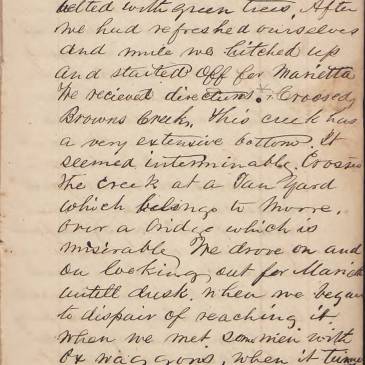 belted with green trees. After
we had refreshed ourselves
and mule we hitched up
and started off for Marietta
We recieved directions. * Crossed
Browns Creek. This creek has
a very extensive bottom. It
seemed interminable. Crossed
the creek at a Tan Yard
which belongs to Moore.
over a bridge which is
miserable We drove on and
on looking out for Mariett
untill dusk. when we began
to dispair of reaching it
when we met som men with
ox waggons, when it turned